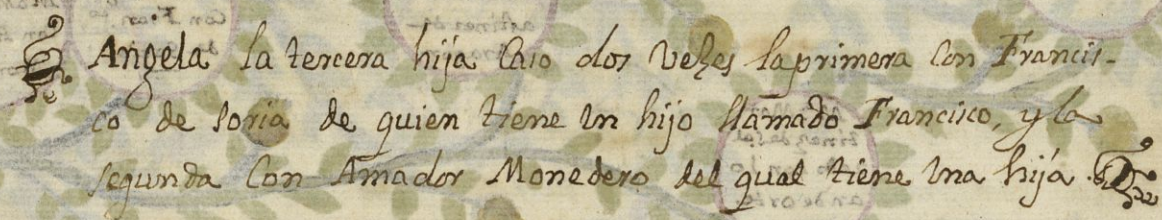 Angela la tercera hija Caso dos Vezes la primera Con Francis-
co de soria de quien tiene un hijo llamado Francisco, y la
segunda Con Amador Monedero del qual tiene una hija.